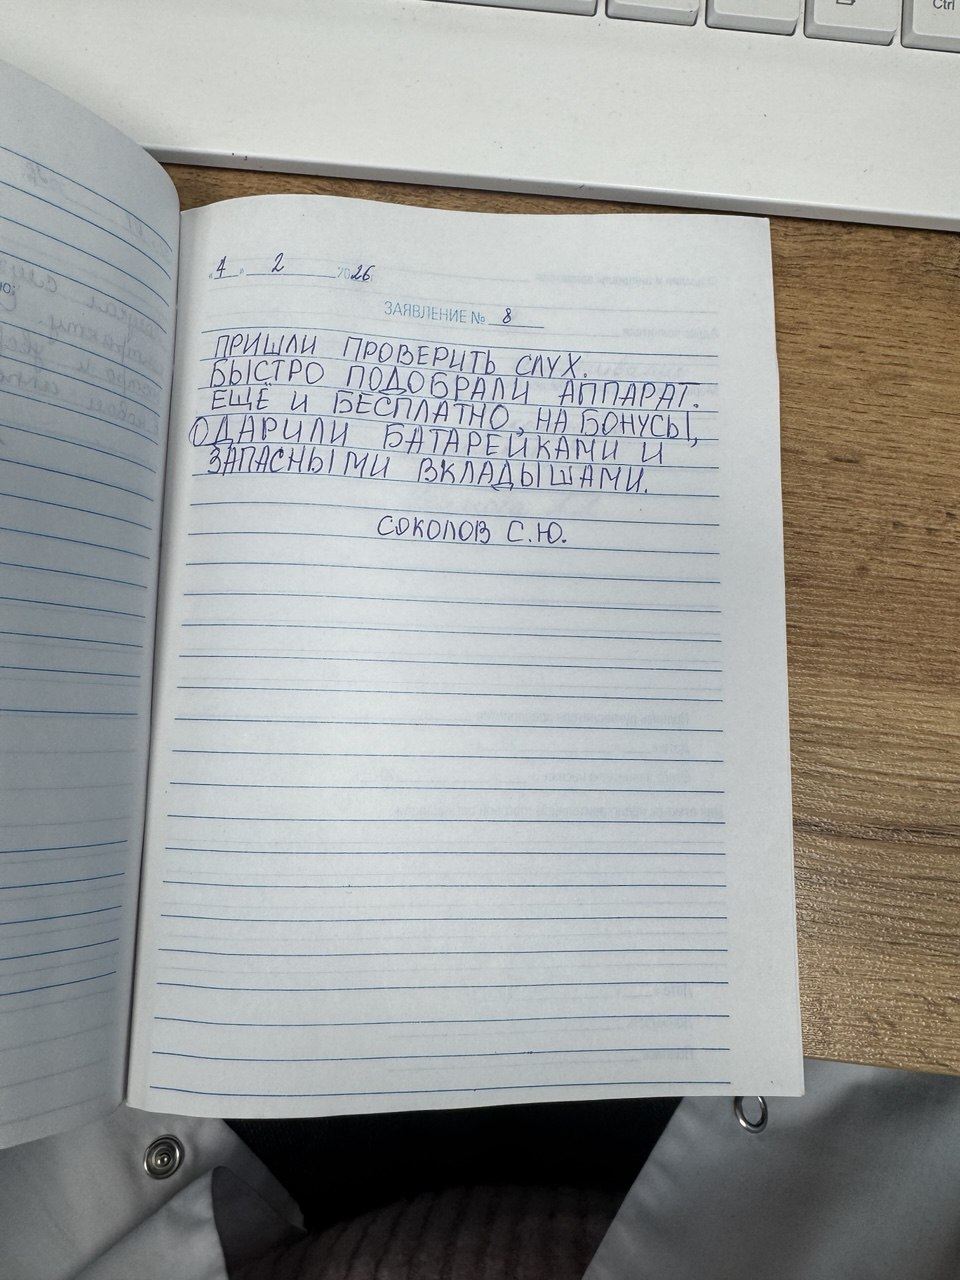 «4» 2 2026
ЗАЯВЛЕНИЕ № 8
ПРИШЛИ ПРОВЕРИТЬ СЛУХ.
БЫСТРО ПОДОБРАЛИ АППАРАТ.
ЕЩЁ И БЕСПЛАТНО, НА БОНУСЫ,
ОДАРИЛИ БАТАРЕЙКАМИ И
ЗАПАСНЫМИ ВКЛАДЫШАМИ.
СОКОЛОВ С.Ю.
Ctrl